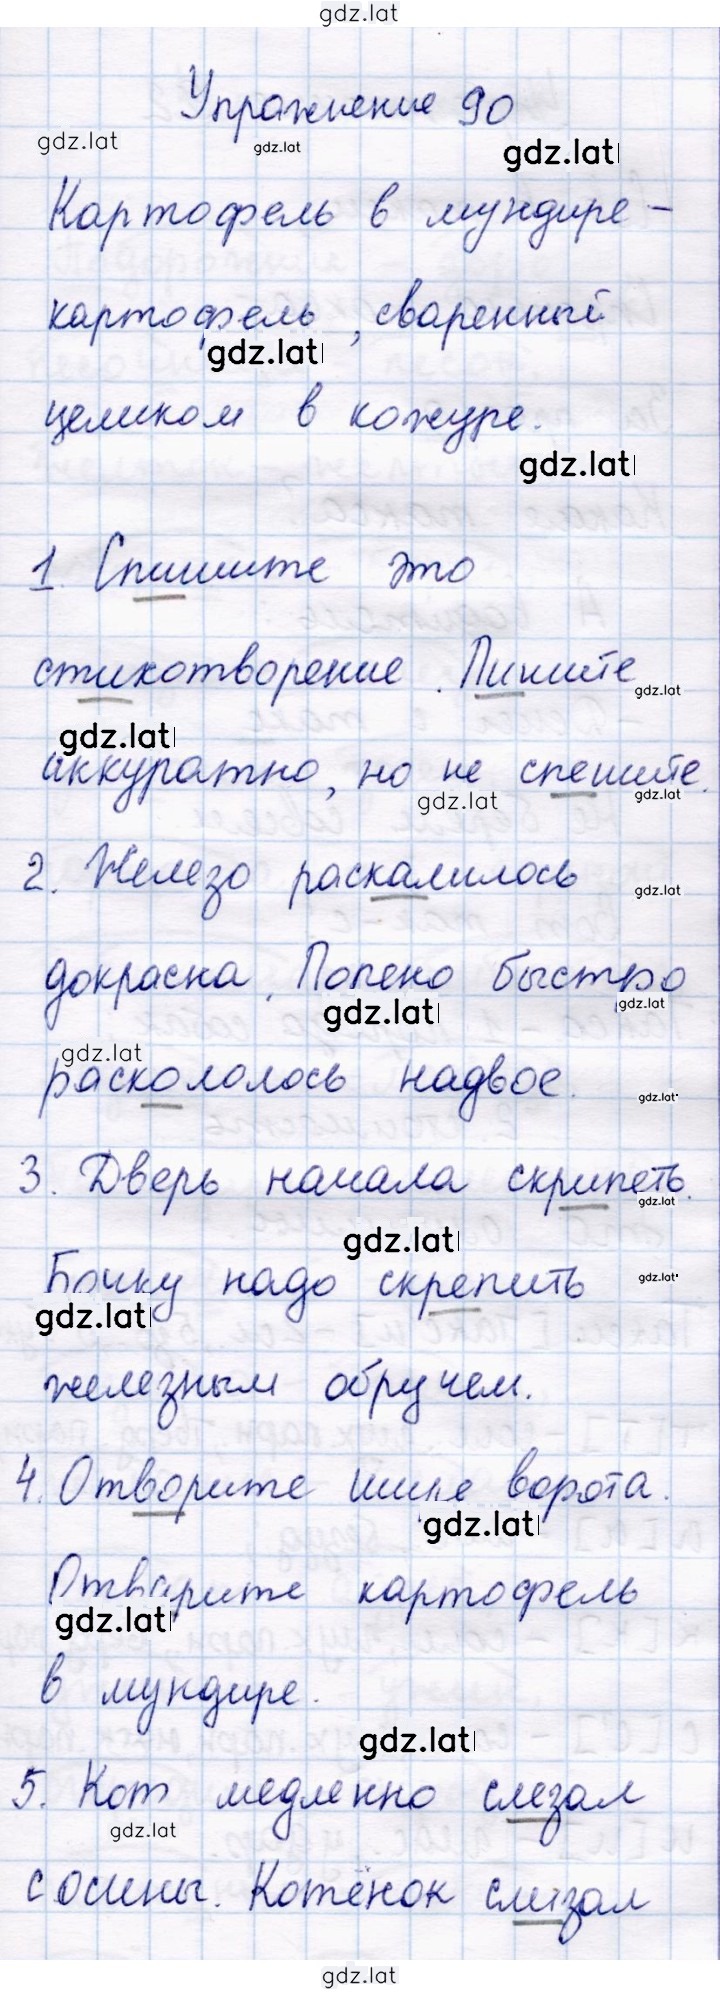 gdz.lat
Упражнение 90
gdz.lat gdz.lat gdz.lat
Картофель в мундире -
картофель, сваренный
gdz.lat
целиком в кожуре.
gdz.lat
1. Спишите это
стихотворение. Пишите
gdz.lat
gdz.lat
аккуратно, но не спешите.
gdz.lat gdz.lat
2. Железо раскалилось
gdz.lat
докрасна. Полено быстро
gdz.lat gdz.lat
gdz.lat
раскололось надвое.
gdz.lat
3. Дверь начала скрипеть.
gdz.lat
gdz.lat
Бочку надо скрепить
gdz.lat
gdz.lat
железным обручем.
4. Отворите шире ворота.
gdz.lat
Отварите картофель
gdz.lat
в мундире.
gdz.lat
5. Кот медленно слезал
gdz.lat
с осины. Котёнок слизал
gdz.lat